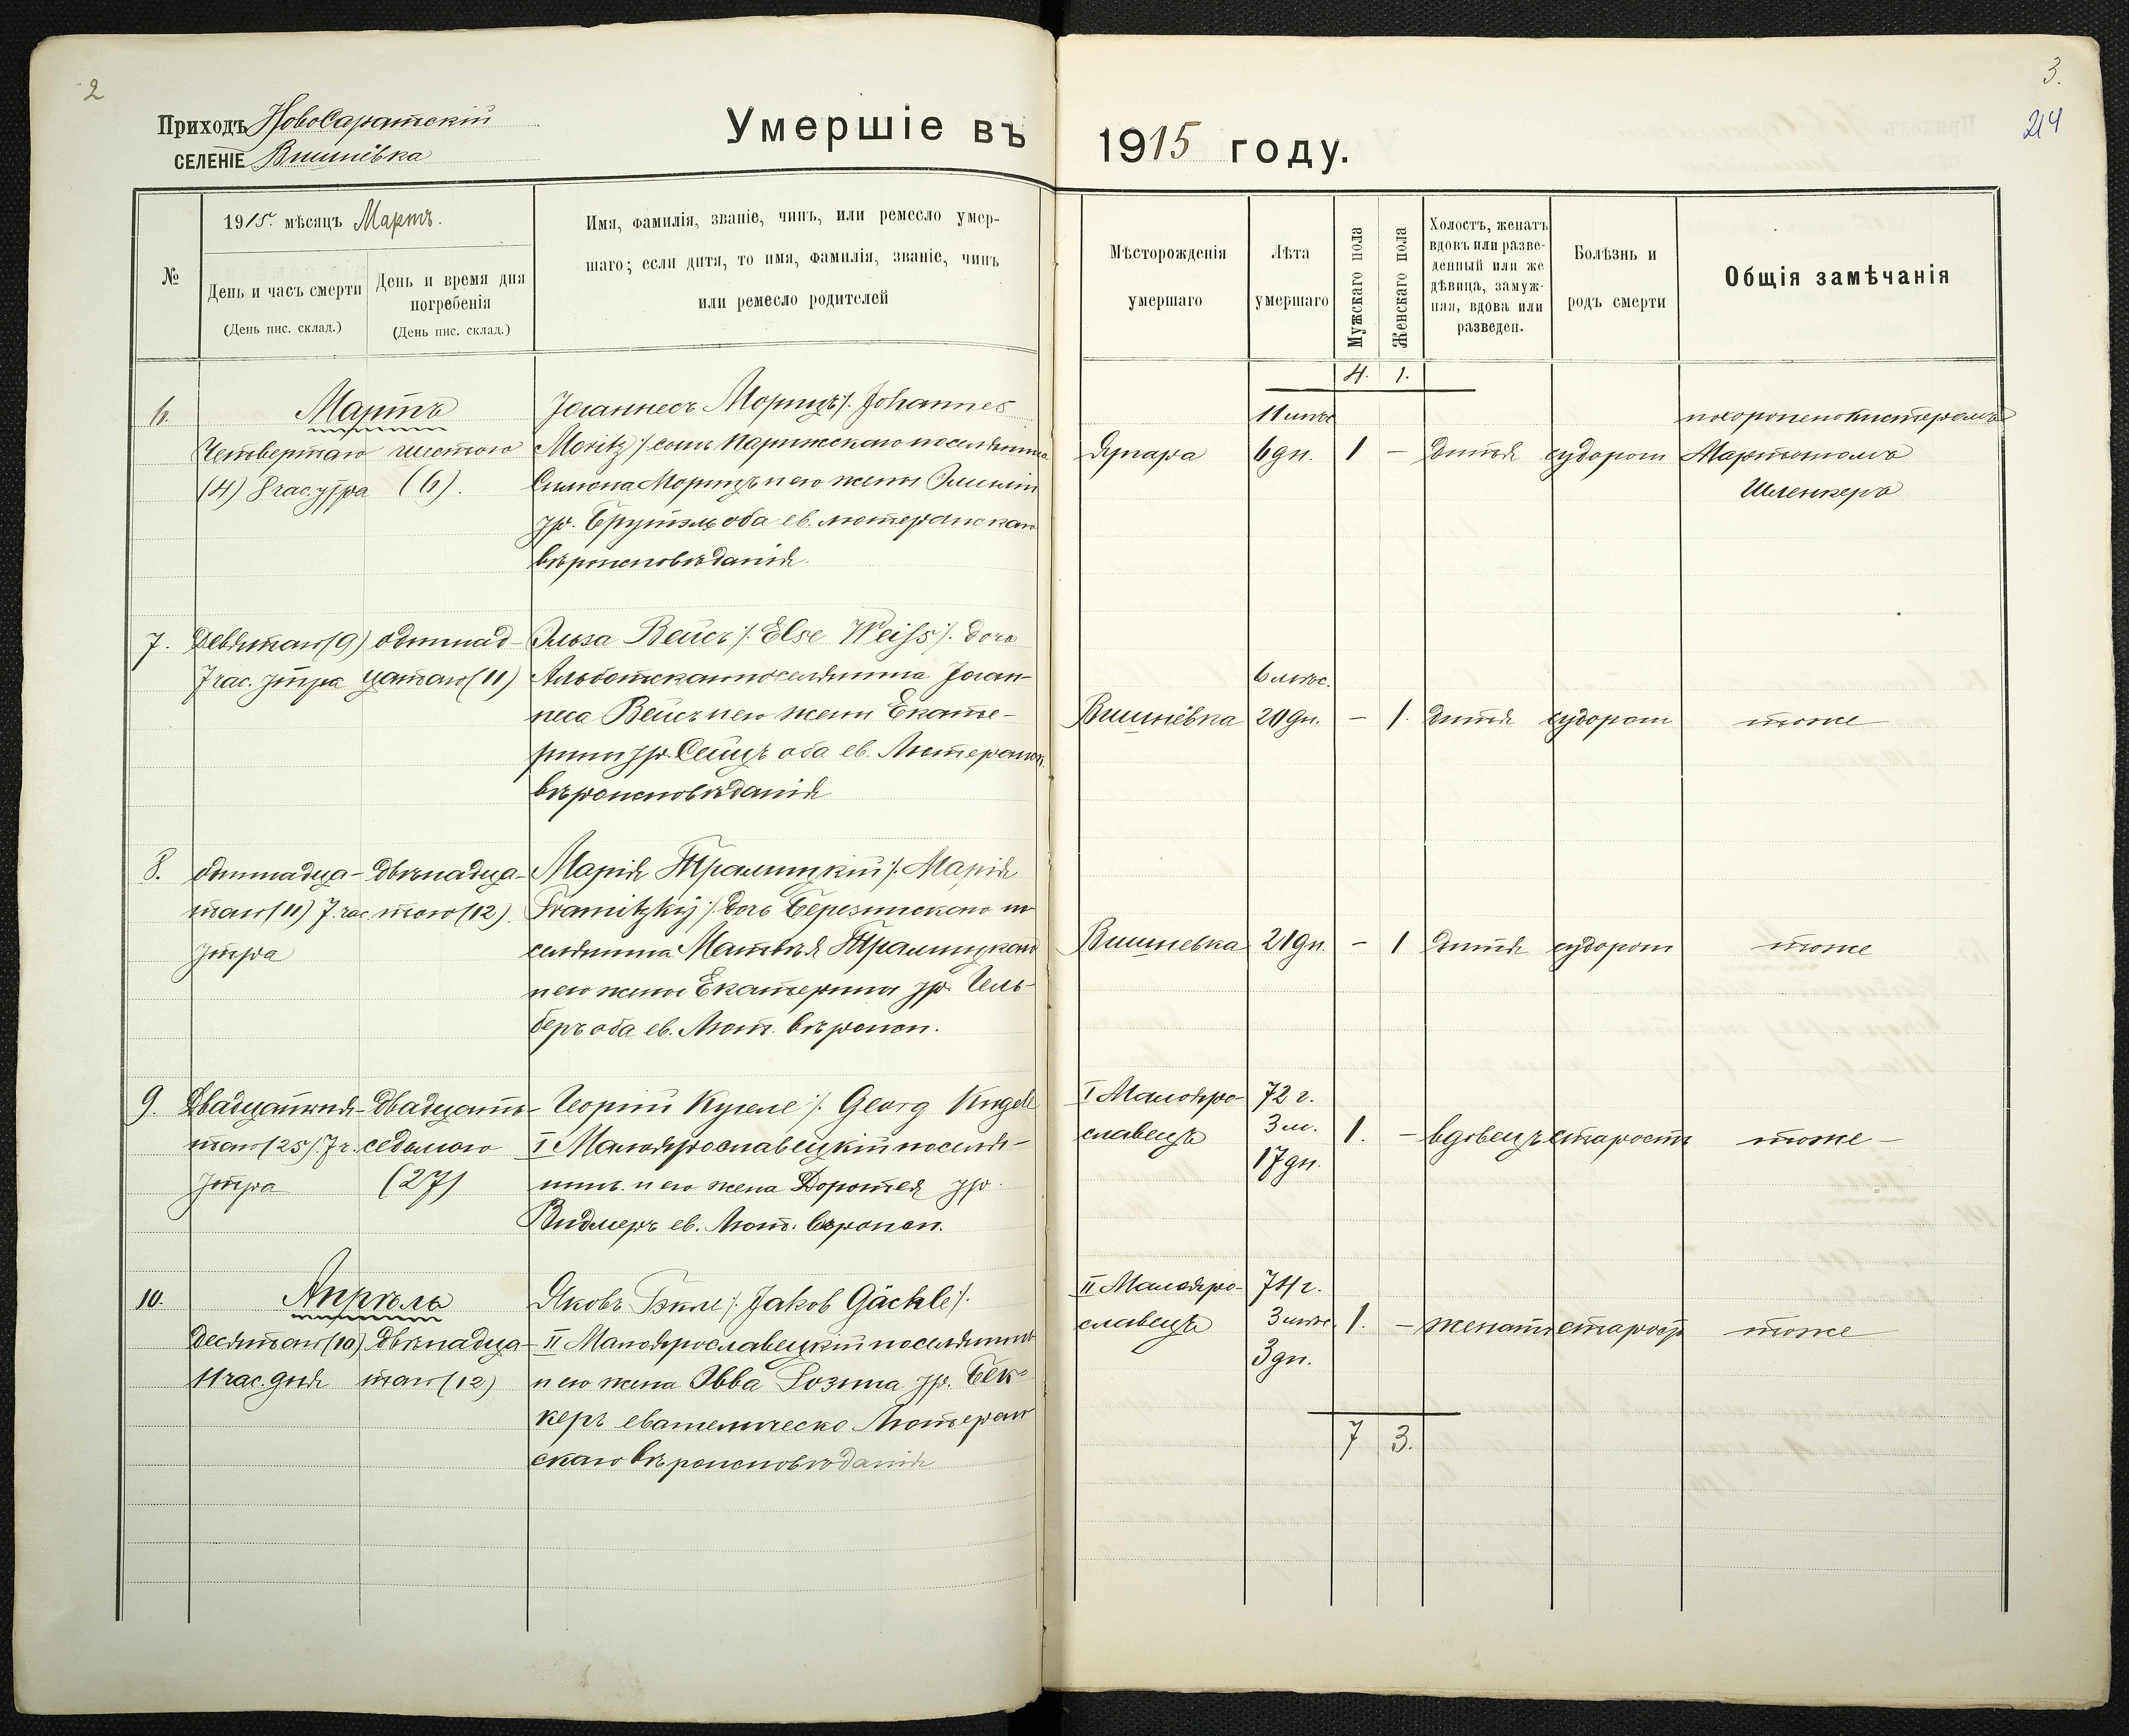 2
Приходъ НовоСаратскій
СЕЛЕНІЕ Вишнёвка
Умершіе въ
1915 году.
3.
214
№
1915. мѣсяцъ Мартъ.
День и часъ смерти
(День пис. склад.)
День и время дня
погребенія
(День пис. склад.)
Имя, фамилія, званіе, чинъ, или ремесло умер-
шаго; если дитя, то имя, фамилія, званіе, чинъ
или ремесло родителей
Мѣсторожденія
умершаго
Лѣта
умершаго
Мужскаго пола
Женскаго пола
Холостъ, женатъ
вдовъ или разве-
денный или же
дѣвица, замуж-
няя, вдова или
разведен.
Болѣзнь и
родъ смерти
Общія замѣчанія
4. 1.
6.
Мартъ
Четвертаго
(4) 8 час. утра
шестого
(6).
Іоганнесъ Морицъ /: Johannes
Moritz :/ сынъ Парижскаго поселянина
Симона Морицъ и его жены Эмиліи
ур. оба ев. лютеранскаго
вѣроисповѣданія.
11 мѣс
6 дн.
1 -
дитя
судорога
похоронено Кистеромъ
Шленкеръ
7.
Девятаго (9)
7 час. утра
одиннад-
цатаго (11)
Эльза Вейсъ /: Else Weiss :/ дочь
поселянина Іоган-
неса Вейсъ и его жены Екате-
рины ур. Сейцъ оба ев. Лютеранск.
вѣроисповѣданія
Вишнёвка
6 мѣс.
20 дн.
- 1.
дитя
судорога
тоже
8.
одиннадца-
таго (11) 7 час
утра
двѣнадца-
таго (12).
Марія Трамицкій /: Марія
Tramitzkij :/ дочь Березинскаго по
селянина Матвѣя Трамицкаго
и его жены Екатерины ур. Гель-
беръ оба ев. Лют. вѣроисп.
Вишневка
21 дн.
- 1
дитя
судорога
тоже
9.
Двадцатьпя-
таго (25) 7 ч.
утра
двадцать-
седьмого
(27)
Георгій Кугеле /: Georg Kugele
I Малоярославецкій поселя-
нинъ. и его жена Доротея ур.
Видмеръ ев. Лют. вѣроисп.
I Малояро-
славецъ
72 г.
3 м.
17 дн.
1. -
вдовецъ
старость
тоже -
10.
Апрѣль
Десятаго (10)
11 час. дня
двѣнадца-
таго (12)
Яковъ Гэкле /: Jakob Gäckle :/.
II Малоярославецкій поселянинъ
и его жена Эвва Розина ур. Бек-
керъ евангелическо Лютеран
скаго вѣроисповѣданія
II Малояро-
славецъ
74 г.
3 мѣс.
3 дн.
1. -
женатъ
старость
тоже
7 3.